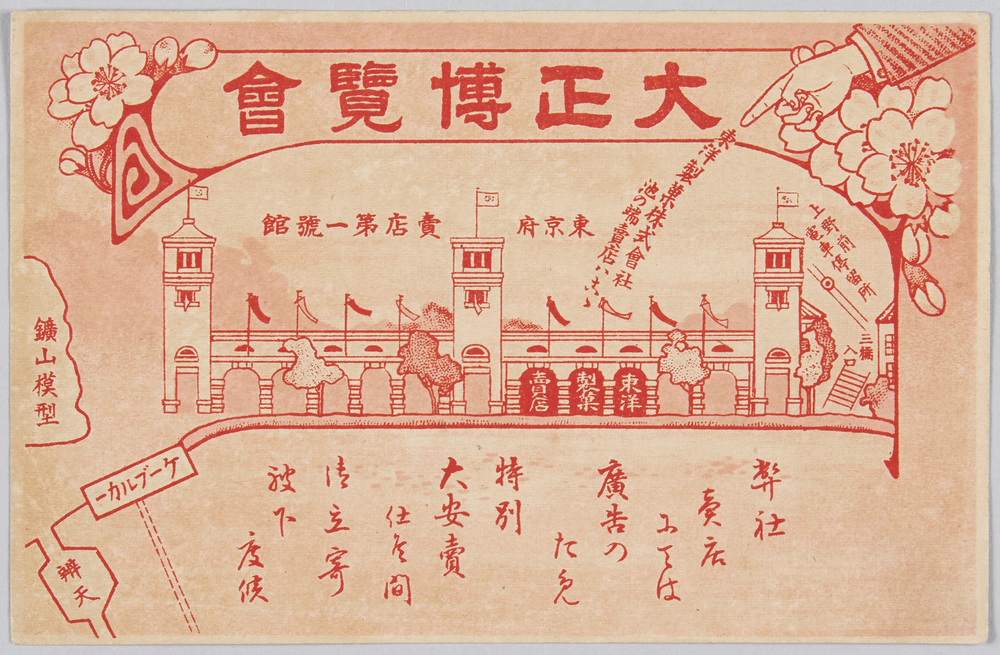 大正博覽會
東京府
賣店第一號館
東洋製菓株式會社
池の端賣店ハこゝ
上野前
電車停留所
三橋
入口
東洋
製菓
賣店
鑛山模型
ケーブルカー
辨天
弊社
賣店
にては
廣告の
ため
特別
大安賣
仕候間
御立寄
被下
度候